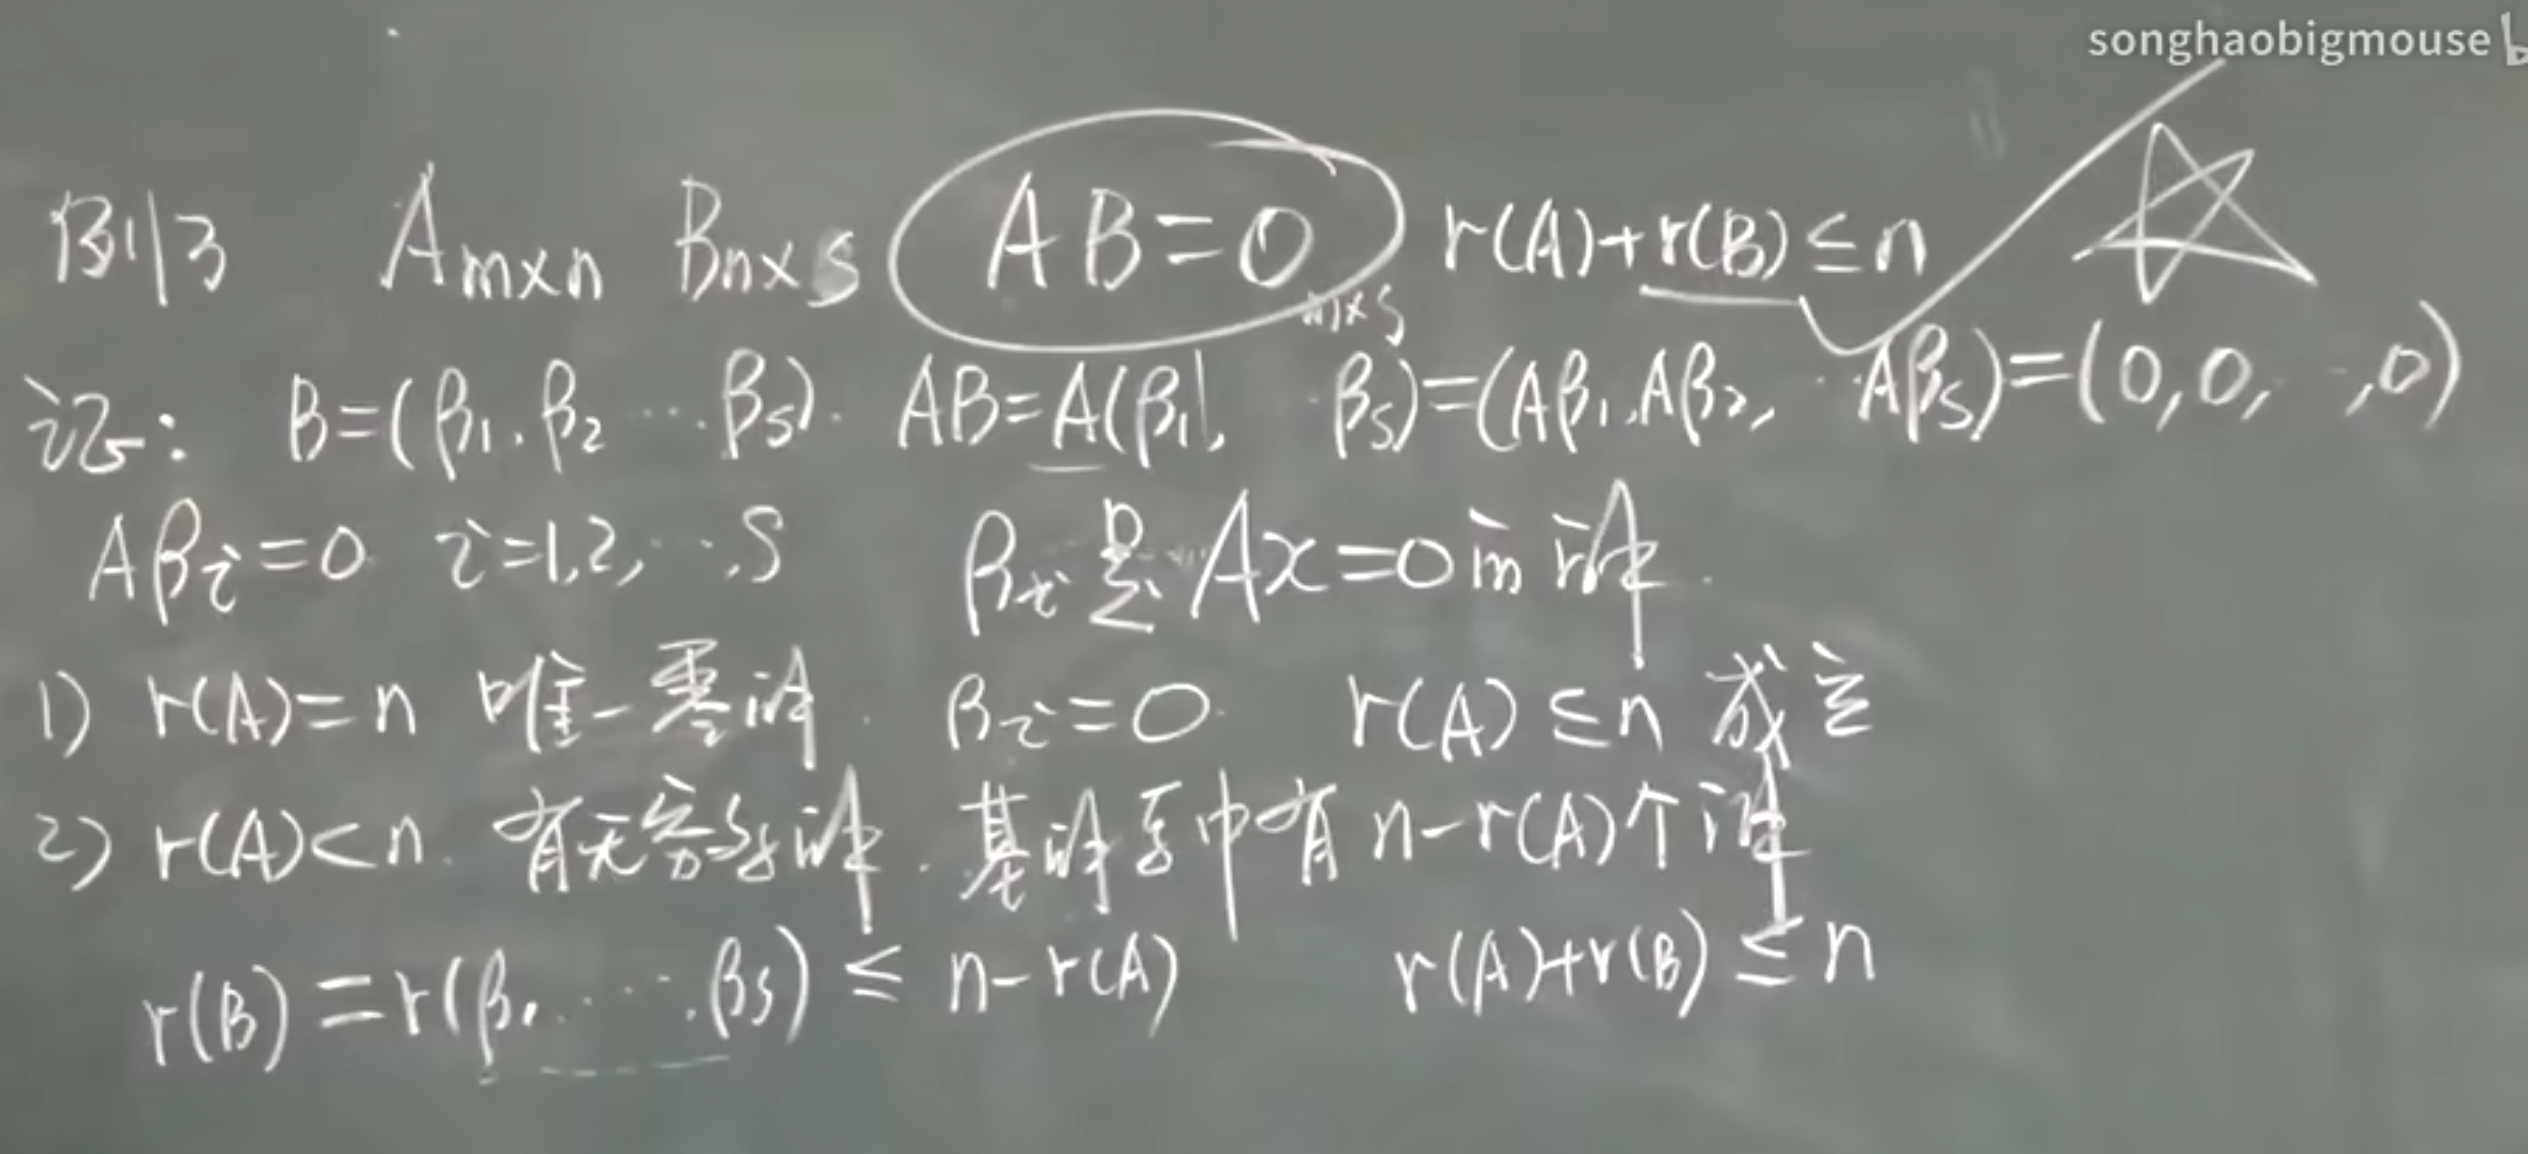 songhaobigmouse b
例3 Am×n Bn×s AB=0m×s r(A)+r(B)≤n
证: B=(β1,β2 ⋯ βs). AB=A(β1, ⋯ βs)=(Aβ1,Aβ2, ⋯ Aβs)=(0,0, ⋯,0)
Aβi=0 i=1,2,⋯,s βi是 Ax=0的解.
1) r(A)=n 唯一零解. βi=0. r(A)≤n 成立
2) r(A)<n. 有无穷多解. 基解系中有 n-r(A)个解
r(B)=r(β1, ⋯ βs) ≤ n-r(A) r(A)+r(B)≤n